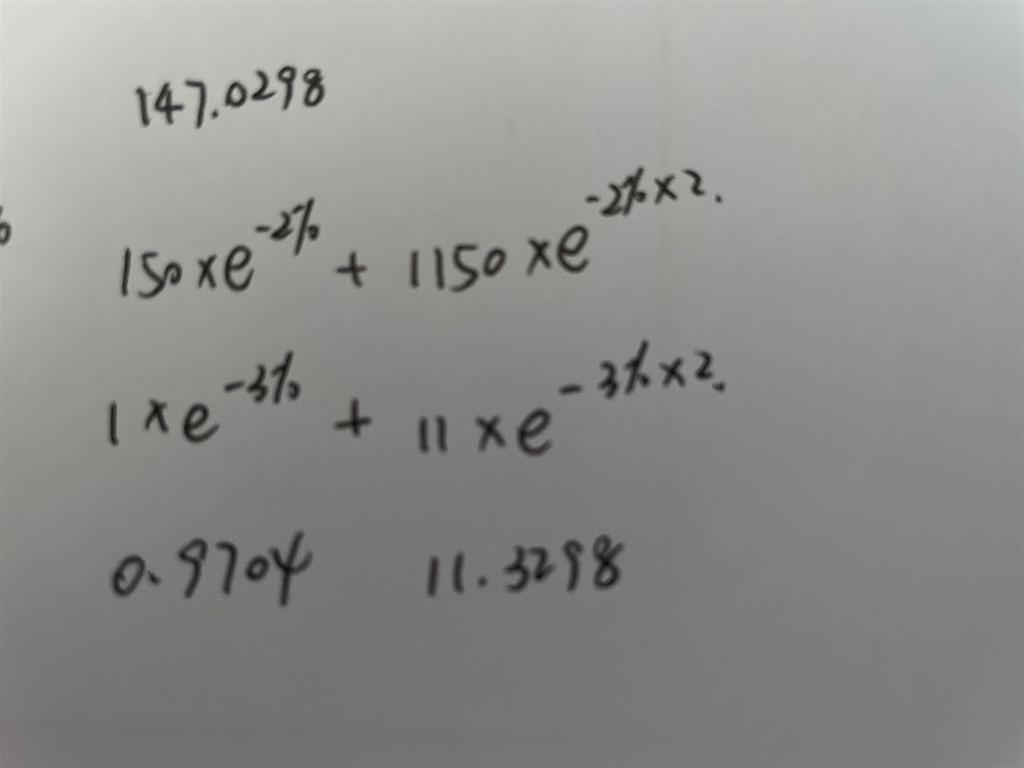 147.0298
%
150×e^-2% + 1150×e^-2%×2.
1×e^-3% + 11×e^-3%×2.
0.9704 11.3298